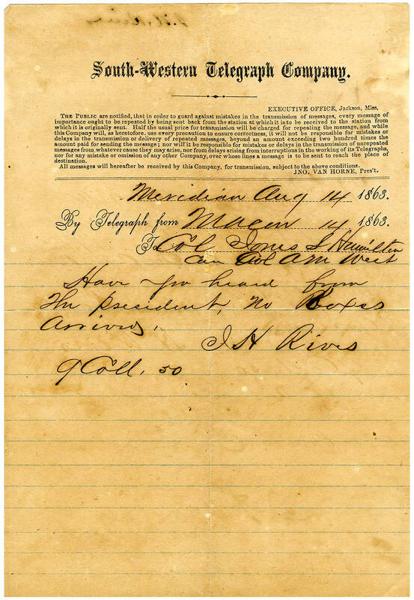 South-Western Telegraph Company.
EXECUTIVE OFFICE, Jackson, Miss.
THE PUBLIC are notified, that in order to guard against mistakes in the transmission of messages, every message of
importance ought to be repeated by being sent back from the station at which it is to be received to the station from
which it is originally sent. Half the usual price for transmission will be charged for repeating the message, and while
this Company will, as heretofore, use every precaution to ensure correctness, it will not be responsible for mistakes or
delays in the transmission or delivery of repeated messages, beyond an amount exceeding two hundred times the
amount paid for sending the message; nor will it be responsible for mistakes or delays in the transmission of unrepeated
messages from whatever cause they may arise, nor from delays arising from interruptions in the working of its Telegraphs,
nor for any mistake or omission of any other Company, over whose lines a message is to be sent to reach the place of
destination.
All messages will hereafter be received by this Company, for transmission, subject to the above conditions.
JNO. VAN HORNE, Pres't.
Meridian Aug 14 1863.
By Telegraph from Macon 14 1863.
To Col Jones S Hamilton
Col A M West
Have you heard from
the president, no Boxes
arrived,
J H Rives
9 Coll. 50